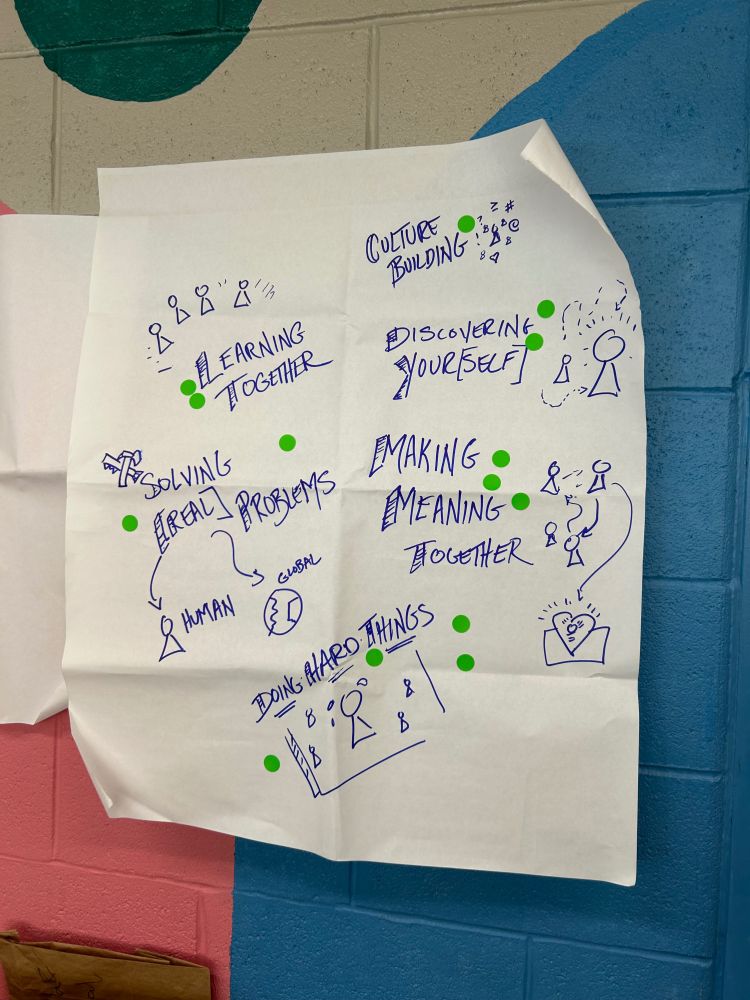 CULTURE
BUILDING
LEARNING
TOGETHER
DISCOVERING
YOUR[SELF]
SOLVING
[REAL] PROBLEMS
HUMAN
GLOBAL
MAKING
MEANING
TOGETHER
DOING HARD THINGS